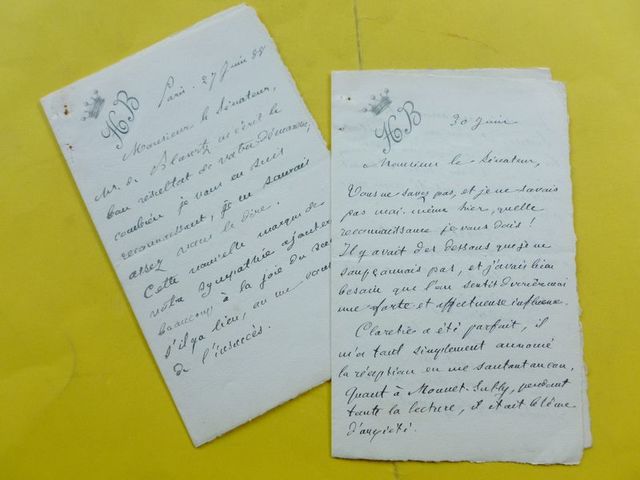 HB
Paris. 27 Juin 88
Monsieur le Sénateur,
Mr. de m'écrit le
bon résultat de votre démarche,
combien je vous en suis
reconnaissant, je ne saurais
assez vous le dire.
Cette nouvelle marque de
votre sympathie ajoutera
beaucoup à la joie du succès
s'il y a lieu, ou me
de l'insuccès.
HB
30 Juin
Monsieur le Sénateur,
Vous ne savez pas, et je ne savais
pas moi-même hier, quelle
reconnaissance je vous dois !
Il y avait des dessous que je ne
soupçonnais pas, et j'avais bien
besoin que l'on sentit derrière moi
une forte et affectueuse influence.
Claretie a été parfait, il
m'a tout simplement annoncé
la réception en me sautant au cou,
Quant à Mounet-Sully, pendant
toute la lecture, il était blême
d'anxiété.